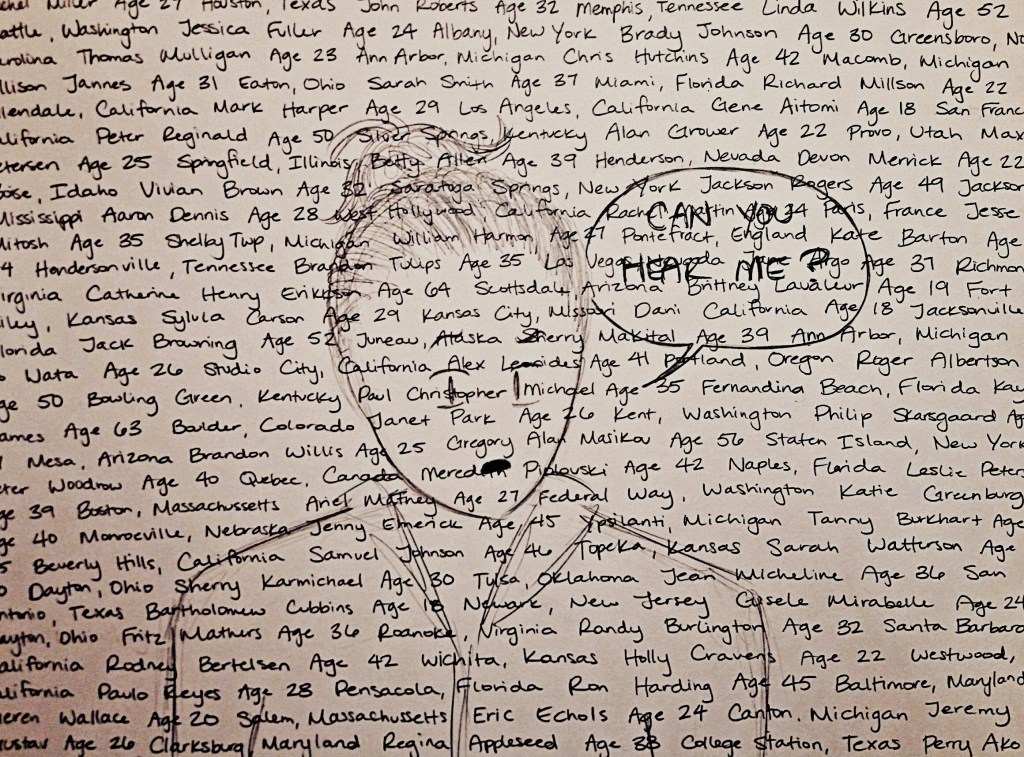 Miller Age 27 Houston, Texas John Roberts Age 32 Memphis, Tennessee Linda Wilkins Age 52
attle, Washington Jessica Fuller Age 24 Albany, New York Brady Johnson Age 30 Greensboro, No
arolina Thomas Mulligan Age 23 Ann Arbor, Michigan Chris Hutchins Age 42 Macomb, Michigan
llison Jannes Age 31 Eaton, Ohio Sarah Smith Age 37 Miami, Florida Richard Millson Age 22
llendale, California Mark Harper Age 29 Los Angeles, California Gene Aitomi Age 18 San Franc
alifornia Peter Reginald Age 50 Silver Springs, Kentucky Alan Grower Age 22 Provo, Utah Max
etersen Age 25 Springfield, Illinois Betty Allen Age 39 Henderson, Nevada Devon Merrick Age 22
oise, Idaho Vivian Brown Age 32 Saratoga Springs, New York Jackson Rogers Age 49 Jackson
Mississippi Aaron Dennis Age 28 West Hollywood, California Age 34 Paris, France Jesse
CAN YOU
HEAR ME?
Mitosh Age 35 Shelby Twp, Michigan William Harmon Age 27 Pontefract, England Kate Barton Age
4 Hendersonville, Tennessee Brandon Tulips Age 35 Las Vegas, Nevada Argo Age 37 Richmon
irginia Catherine Henry Erikson Age 64 Scottsdale Arizona Brittney Lavaleur Age 19 Fort
iley, Kansas Sylvia Carson Age 29 Kansas City, Missouri Dani California Age 18 Jacksonville
lorida Jack Browning Age 52 Juneau, Alaska Sherry Makital Age 39 Ann Arbor, Michigan
Wata Age 26 Studio City, California Alex Leonides Age 41 Portland, Oregon Roger Albertson
ge 50 Bowling Green, Kentucky Paul Christopher Michael Age 35 Fernandina Beach, Florida Kay
ames Age 63 Boulder, Colorado Janet Park Age 26 Kent, Washington Philip Skarsgaard Ag
Mesa, Arizona Brandon Willis Age 25 Gregory Alan Masikov Age 56 Staten Island, New York
eter Woodrow Age 40 Quebec, Canada Meredith Piolovski Age 42 Naples, Florida Leslie Peter
ge 39 Boston, Massachusetts Ariel Mathey Age 27 Federal Way, Washington Katie Greenburg
ge 40 Monroeville, Nebraska Jenny Emerick Age 45 Ypsilanti, Michigan Tanny Burkhart Age
5 Beverly Hills, California Samuel Johnson Age 46 Topeka, Kansas Sarah Watterson Age
0 Dayton, Ohio Sherry Karmichael Age 30 Tulsa, Oklahoma Jean Micheline Age 36 San
ntonio, Texas Bartholomew Cubbins Age 18 Newark, New Jersey Gisele Mirabelle Age 24
ayton, Ohio Fritz Mathers Age 36 Roanoke, Virginia Randy Burlington Age 32 Santa Barbara
alifornia Rodney Bertelsen Age 42 Wichita, Kansas Holly Cravens Age 22 Westwood,
alifornia Paulo Reyes Age 28 Pensacola, Florida Ron Harding Age 45 Baltimore, Maryland
ieren Wallace Age 20 Salem, Massachussetts Eric Echols Age 24 Canton, Michigan Jeremy
ustav Age 26 Clarksburg Maryland Regina Appleseed Age 33 College Station, Texas Perry Ako